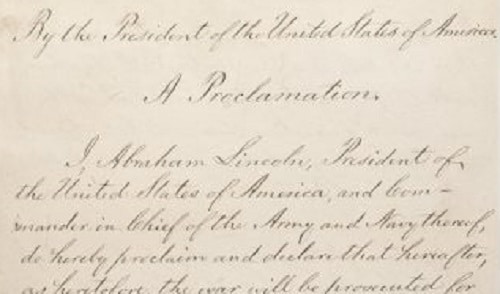 By the President of the United States of America.
A Proclamation.
I, Abraham Lincoln, President of
the United States of America, and Com-
mander in Chief of the Army and Navy thereof,
do hereby proclaim and declare that hereafter,
as heretofore, the war will be prosecuted for